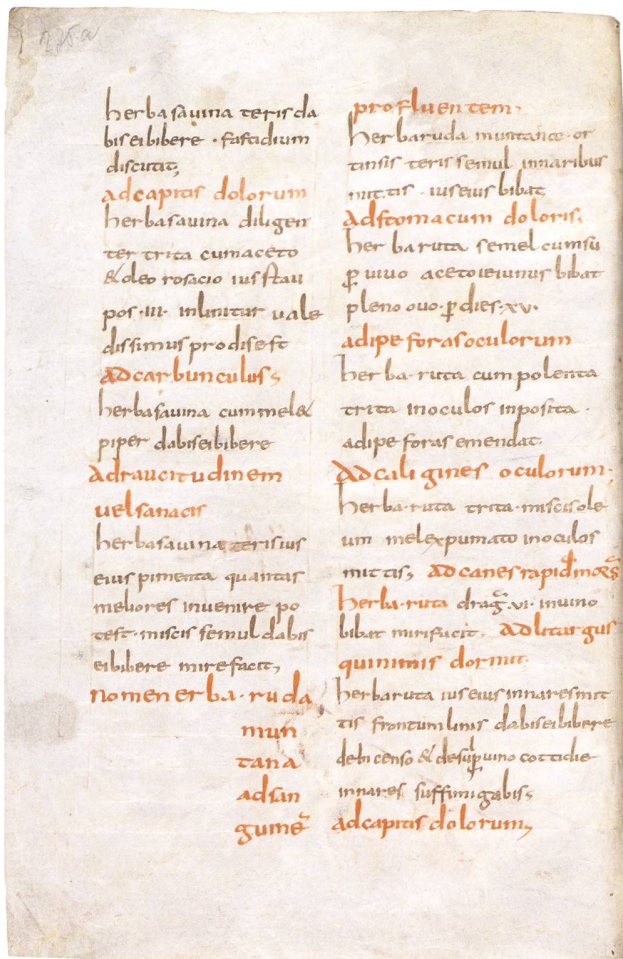 275a
herbasauina teris da
biseibibere · fastidium
discutit;
adcapitis dolorum
herbasauina diligen
ter trita cumaceto
& oleo rosacio ius stau
pos · III · inlinitur uale
dissimus prodisest
adcarbunculus;
herbasauina cummel&
piper dabiseibibere
adraucitudinem
uelsanacis
herbasauina terisius
eius pimenta quantas
meliores inuenire po
test · miscis semul dabis
eibibere mirefacit;
nomenerba · ruda
mun
tana
adsan
guinē
profluentem;
herbaruda muntana · or
tinsis teris semul innaribus
mittis · iuseius bibat
adstomacum doloris;
herbaruta semel cumsu
ꝑ uiuo aceto ieiunus bibat
pleno ouo · ꝑ dies · xv ·
adipe forasoculorum
herba · ruta cum polenta
trita inoculos inposita ·
adipe foras emendat
Adcaligines oculorum;
herba · ruta trita · miscisole
um melexpumato inoculos
mittis; adcanesrapidi
herba · ruta drag̃ · vi · inuino
bibat mirifacit. adlitargus
quinimis dormit ·
herbaruta iuseius innaresmit
tis frontumlinis dabiseibibere
debicenso & desuꝑuino cottidie
innares suffimigabis;
adcapitis dolorum;